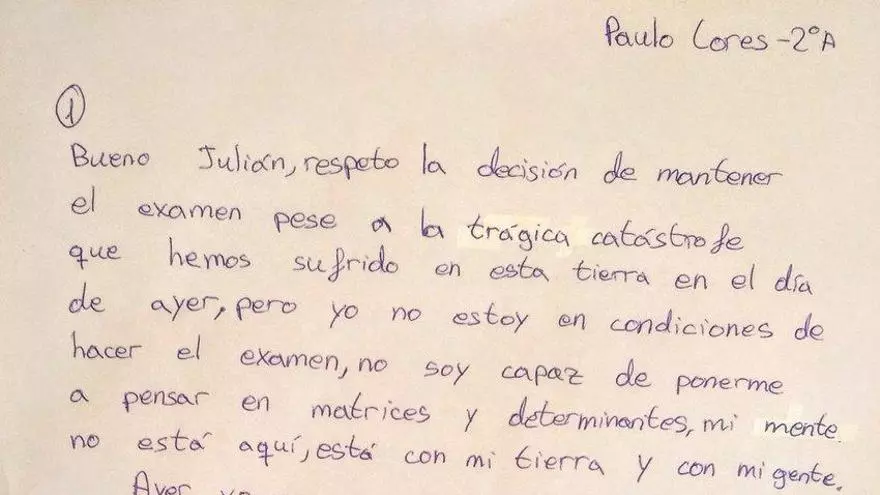 Paulo Lores - 2ºA
1
Bueno Julián, respeto la decisión de mantener
el examen pese a la trágica catástrofe
que hemos sufrido en esta tierra en el día
de ayer, pero yo no estoy en condiciones de
hacer el examen, no soy capaz de ponerme
a pensar en matrices y determinantes, mi mente
no está aquí, está con mi tierra y con mi gente.
Ayer yo